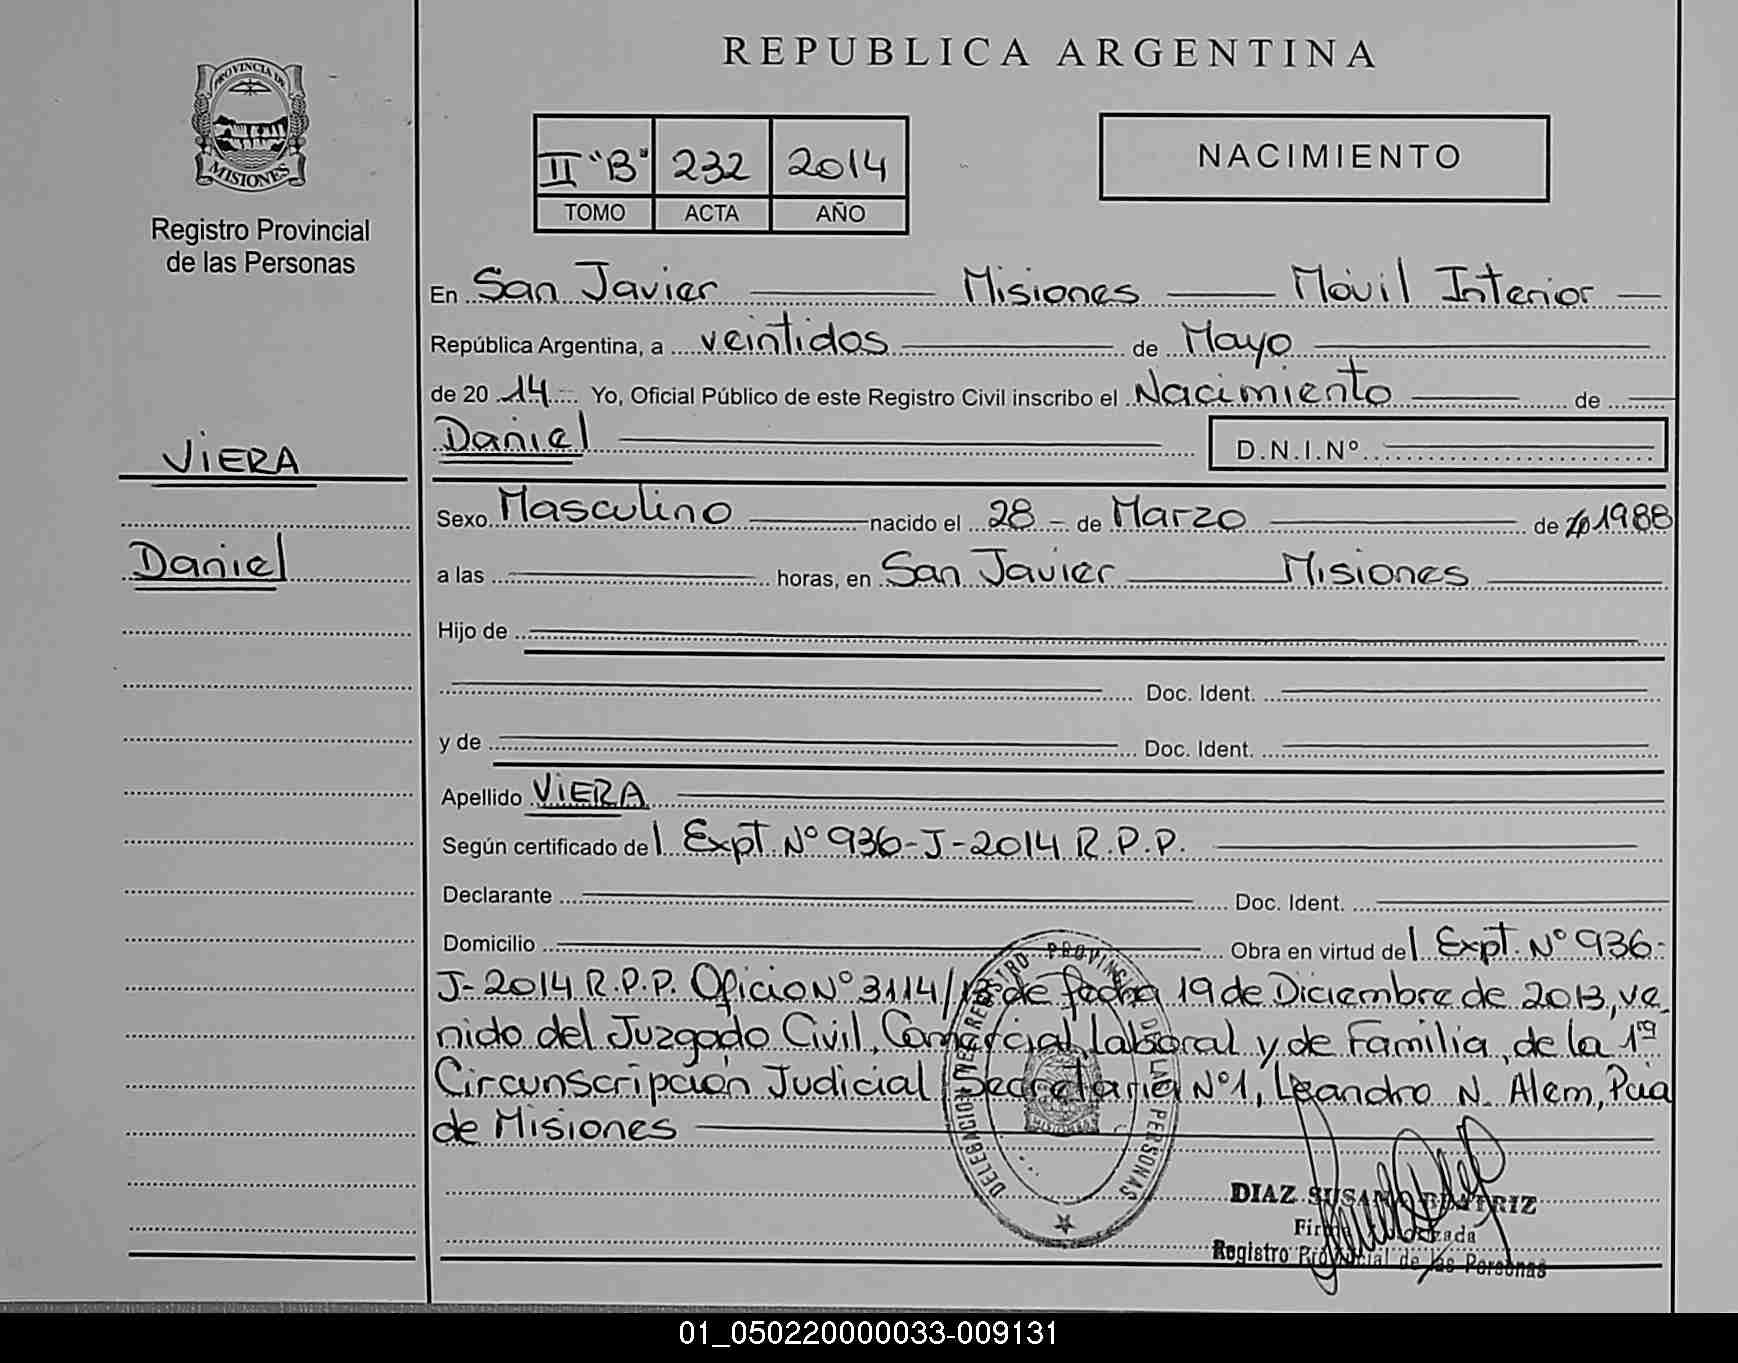 REPUBLICA ARGENTINA
PROVINCIA DE
MISIONES
Registro Provincial
de las Personas
II "B" 232 2014
TOMO ACTA AÑO
NACIMIENTO
En San Javier Misiones Móvil Interior
República Argentina, a veintidos de Mayo
de 20 14 Yo, Oficial Público de este Registro Civil inscribo el Nacimiento de
Daniel D.N.I.Nº
VIERA
Daniel
Sexo Masculino nacido el 28 de Marzo de 1988
a las horas, en San Javier Misiones
Hijo de
Doc. Ident.
y de Doc. Ident.
Apellido VIERA
Según certificado del Expt. Nº 936-J-2014 R.P.P.
Declarante Doc. Ident.
Domicilio Obra en virtud del Expt. Nº 936-
J-2014 R.P.P. Oficio Nº 3114/13 de fecha 19 de Diciembre de 2013, ve
nido del Juzgado Civil, Comercial, Laboral y de Familia, de la 1ra
Circunscripción Judicial Secretaria Nº1, Leandro N. Alem, Pcia
de Misiones
REGISTRO PROVINCIAL DE LAS PERSONAS
DELEGACION
DIAZ SUSANA BEATRIZ
Firma Autorizada
Registro Provincial de las Personas
01_050220000033-009131